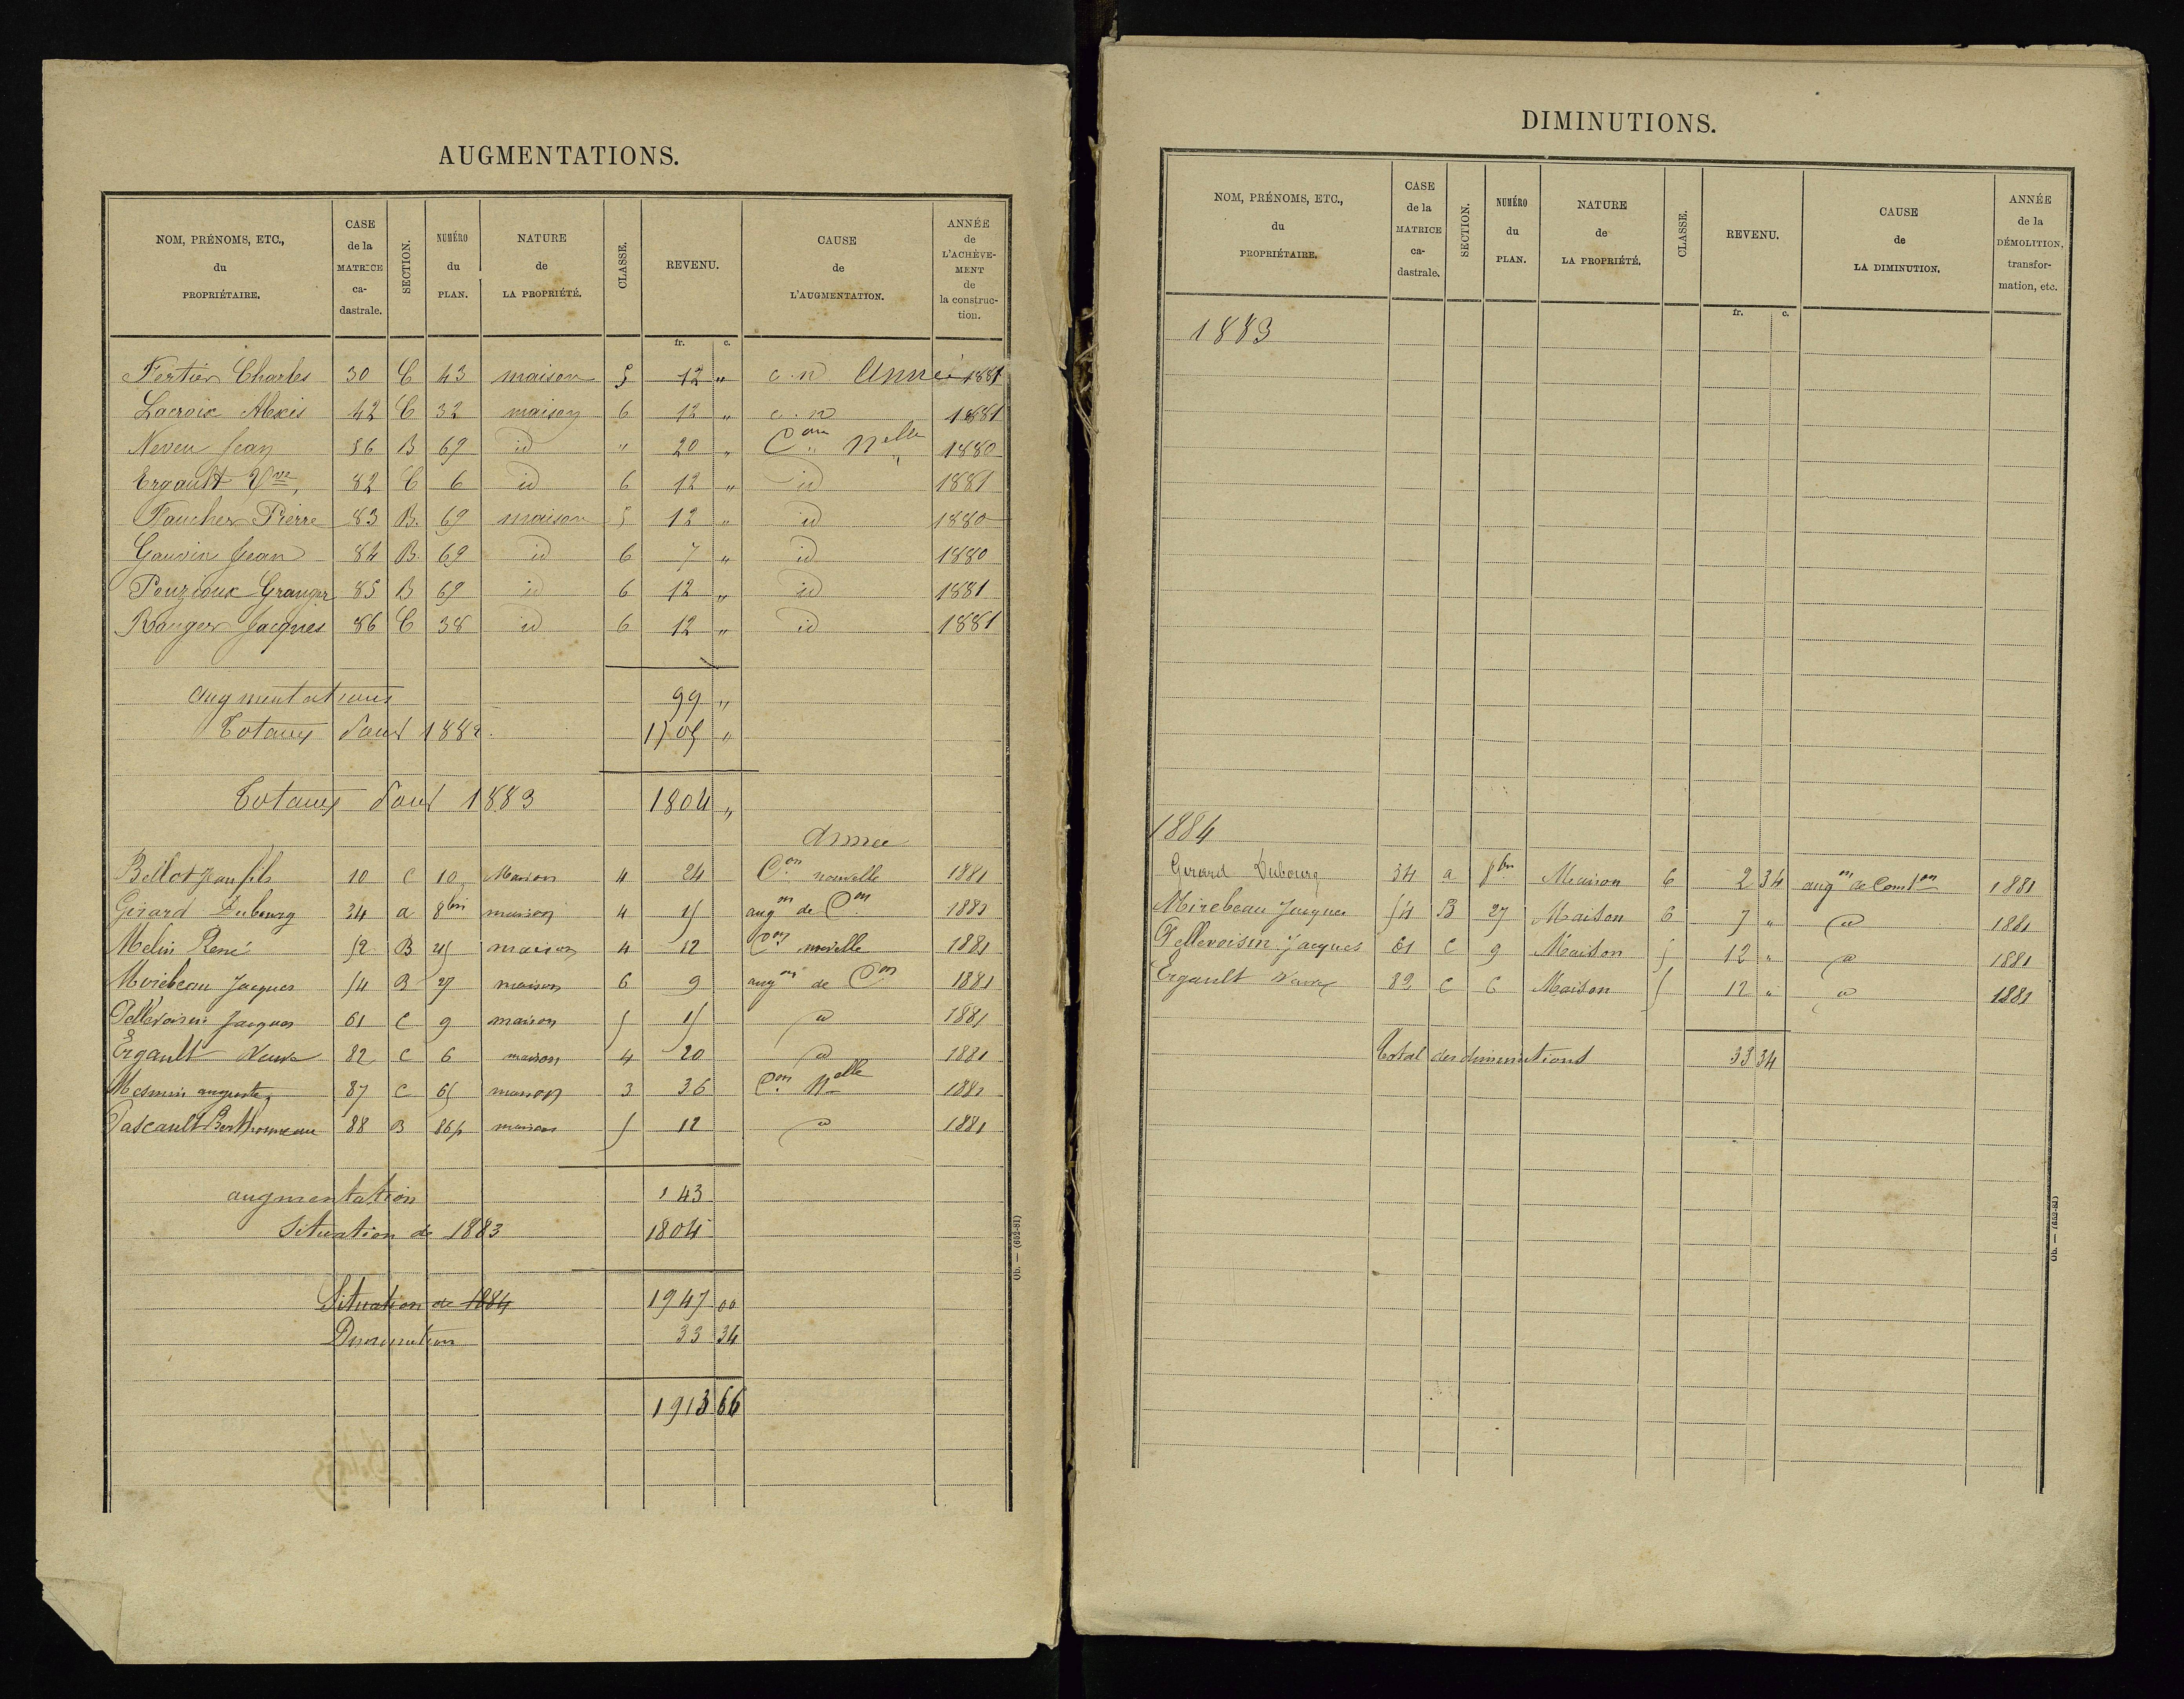 AUGMENTATIONS.
NOM, PRÉNOMS, ETC., du PROPRIÉTAIRE. CASE de la MATRICE ca-dastrale. SECTION. NUMÉRO du PLAN. NATURE de LA PROPRIÉTÉ. CLASSE. REVENU. CAUSE de L'AUGMENTATION. ANNÉE de L'ACHÈVE-MENT de la construc-tion.
fr. c.
Fertier Charles 30 C 43 maison 5 12 " c. n Année 1881
Lacroix Alexis 42 C 32 maison 6 12 " c. n 1881
Neveu Jean 56 B 69 id " 20 " Con Nelle 1880
Ergault Vve 82 C 6 id 6 12 " id 1881
Faucher Pierre 83 B. 69 maison 5 12 " id 1880
Gauvin Jean 84 B. 69 id 6 7 " id 1880
Pouzioux Granger 85 B 69 id 6 12 " id 1881
Rouger Jacques 86 C 38 id 6 12 " id 1881
augmentations 99 "
Totaux d'aout 1882. 1705 "
Totaux d'aout 1883 1804 "
année
Bellot Jean fils 10 C 10 Maison 4 24 Con nouvelle 1881
Girard Dubourg 34 a 8bis maison 4 15 augon de Con 1881
Melin René 52 B 25 maison 4 12 Con nouvelle 1881
Mirebeau Jacques 54 B 27 maison 6 9 augon de Con 1881
Pellevoisin Jacques 61 C 9 maison 5 15 id 1881
Ergault Veuve 82 C 6 maison 4 20 id 1881
Mesmin auguste 87 C 65 maison 3 36 Con Nelle 1881
Pascault Berthommeau 88 B 86p maison 5 12 id 1881
augmentation 143
Situation de 1883 1804
Situation de 1884 1947 00
Diminution 33 34
1913 66
Ob. — (652-81)
DIMINUTIONS.
NOM, PRÉNOMS, ETC., du PROPRIÉTAIRE. CASE de la MATRICE ca-dastrale. SECTION. NUMÉRO du PLAN. NATURE de LA PROPRIÉTÉ. CLASSE. REVENU. CAUSE de LA DIMINUTION. ANNÉE de la DÉMOLITION, transfor-mation, etc.
fr. c.
1883
1884
Girard Dubourg 34 a 8bis Maison 6 2 34 augon de Conston 1881
Mirebeau Jacques 54 B 27 Maison 6 7 " id 1881
Pellevoisin Jacques 61 C 9 Maison 5 12 " id 1881
Ergault Veuve 82 C 6 Maison 5 12 " id 1881
Total des diminutions 33 34
Ob. — (652-81)